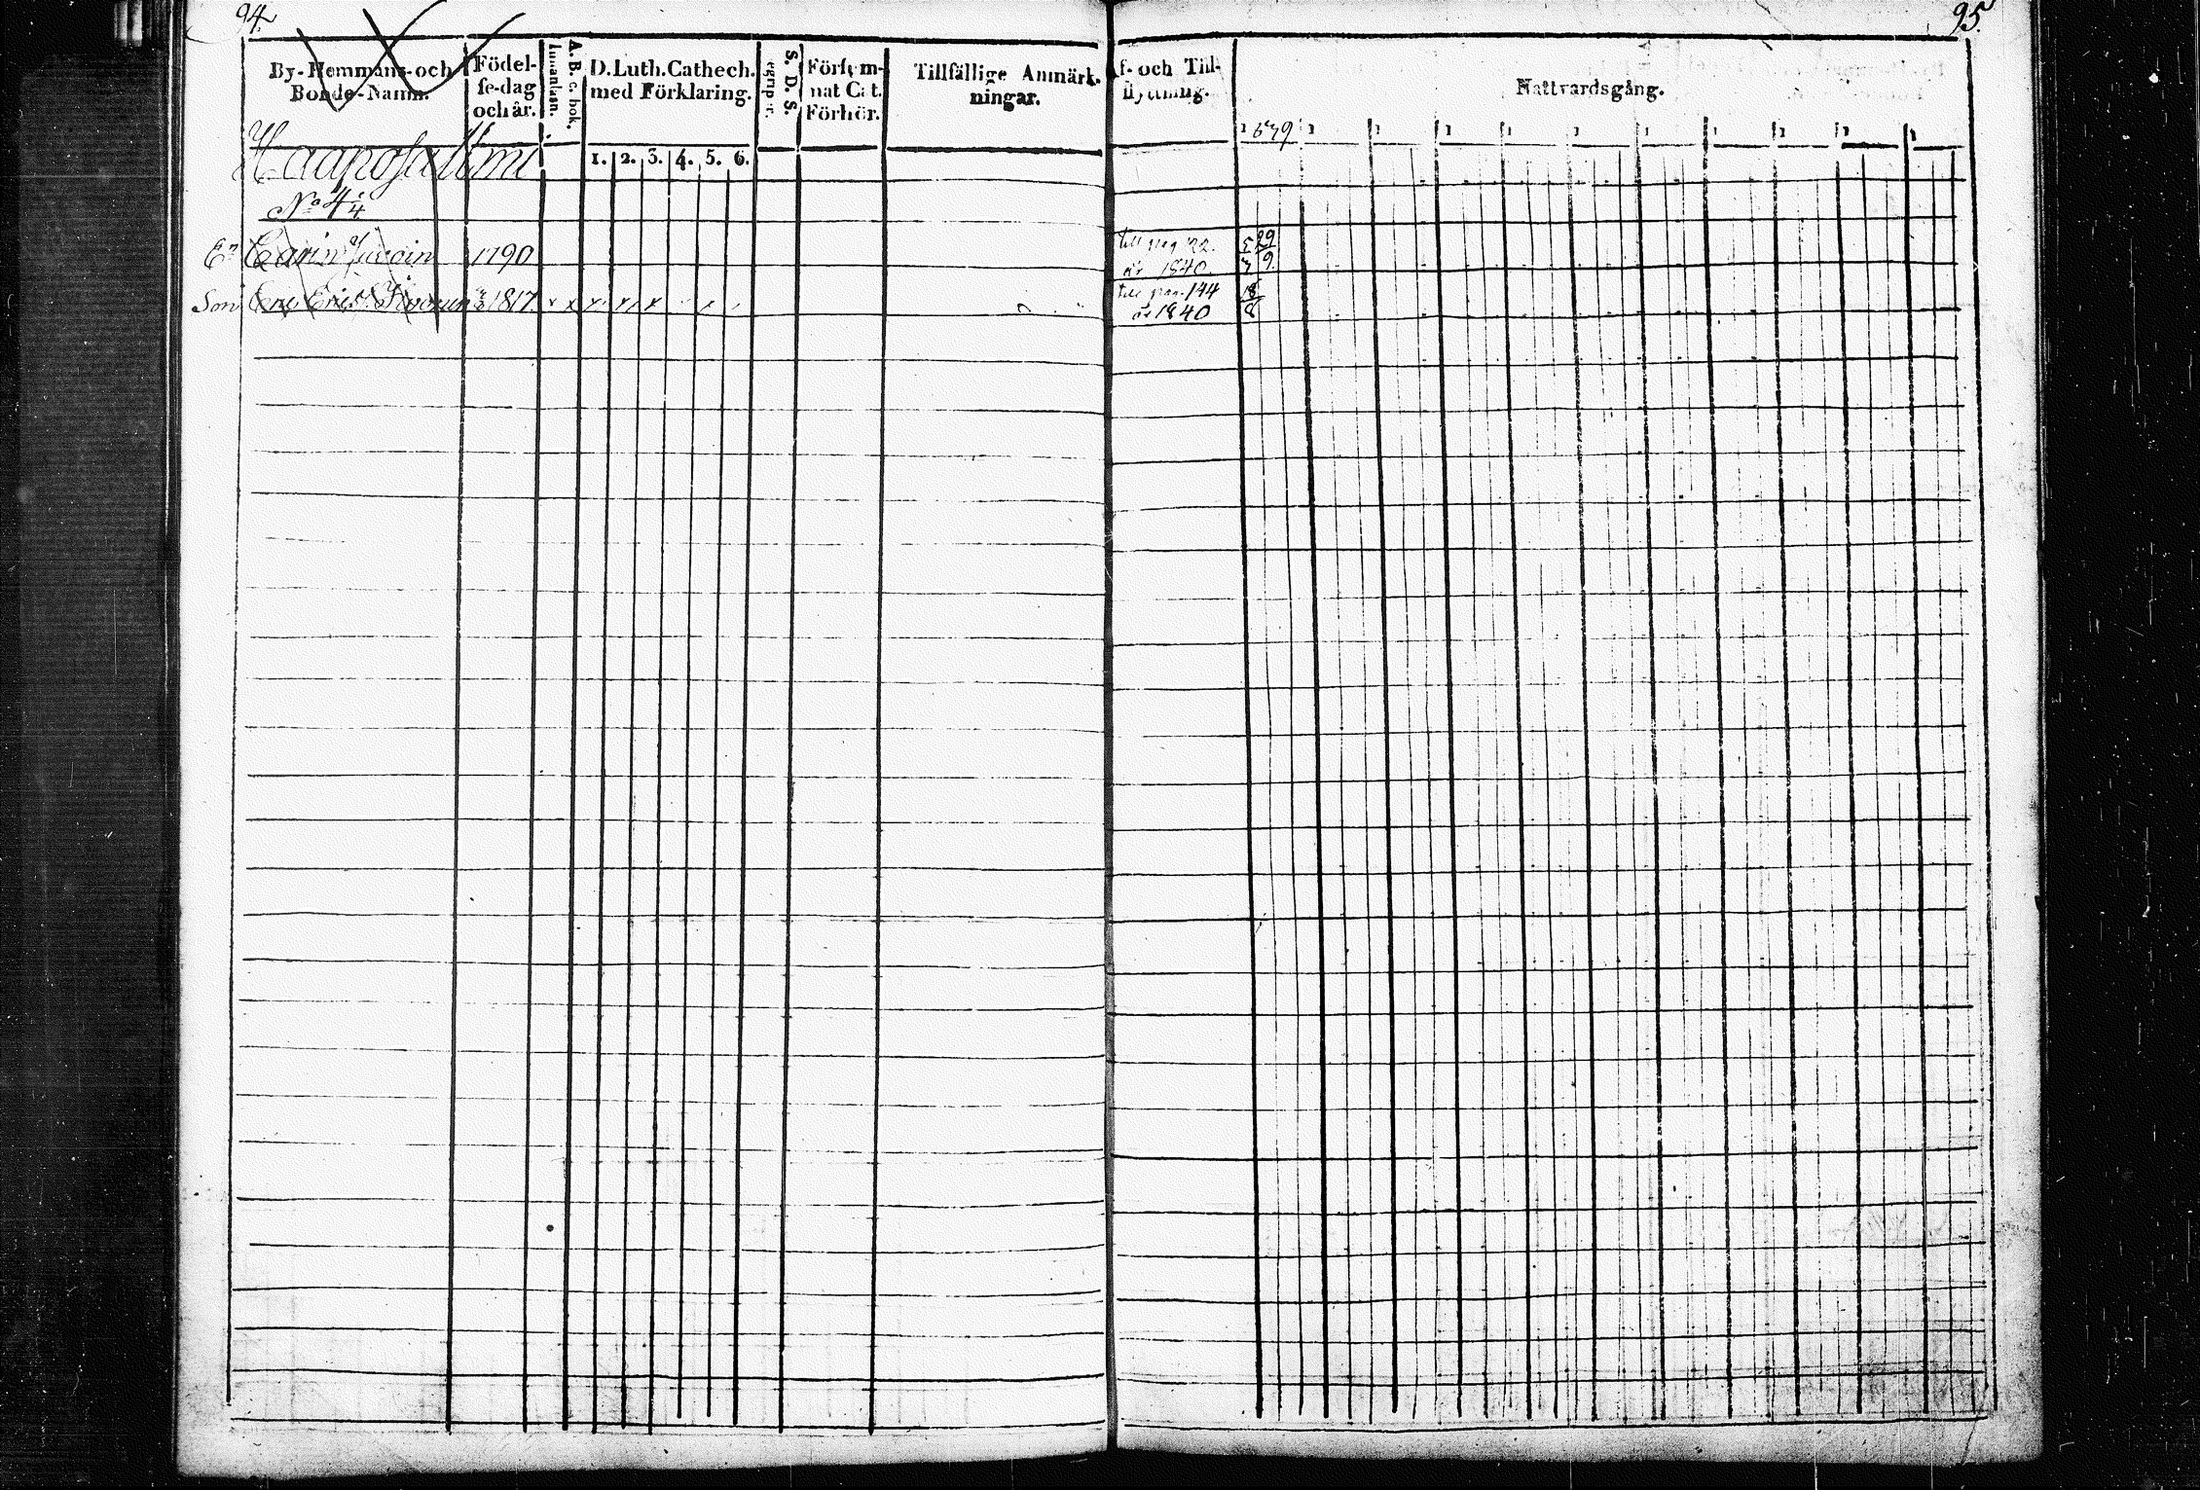 94.
By-Hemmans-och
Bonde-Namn.
Födel-
se-dag
och år.
Innanläsn.
A. B. c. bok.
D. Luth. Cathech.
med Förklaring.
1. 2. 3. 4. 5. 6.
S. D. S.
Försum-
nat Cat.
Förhör.
Tillfällige Anmärk-
ningar.
Haapasalmi
No 4 1/4
1790
Son 1817 x x x x x x
95.
Af- och Till-
flyttning.
Nattvardsgång.
till pag 22.
år 1840.
till pag. 144
år 1840
29
9
18
8